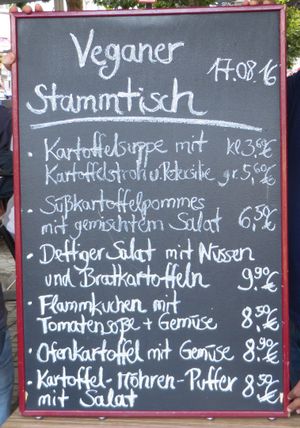 Veganer
17.08.16
Stammtisch
• Kartoffelsuppe mit kl. 3,60€
Kartoffelstroh u. Petersilie gr. 5,60€
• Süßkartoffelpommes
mit gemischtem Salat 6,50€
• Deftiger Salat mit Nüssen
und Bratkartoffeln 9,90€
• Flammkuchen mit
Tomatensoße + Gemüse 8,50€
• Ofenkartoffel mit Gemüse 8,90€
• Kartoffel-Möhren-Puffer 8,50€
mit Salat